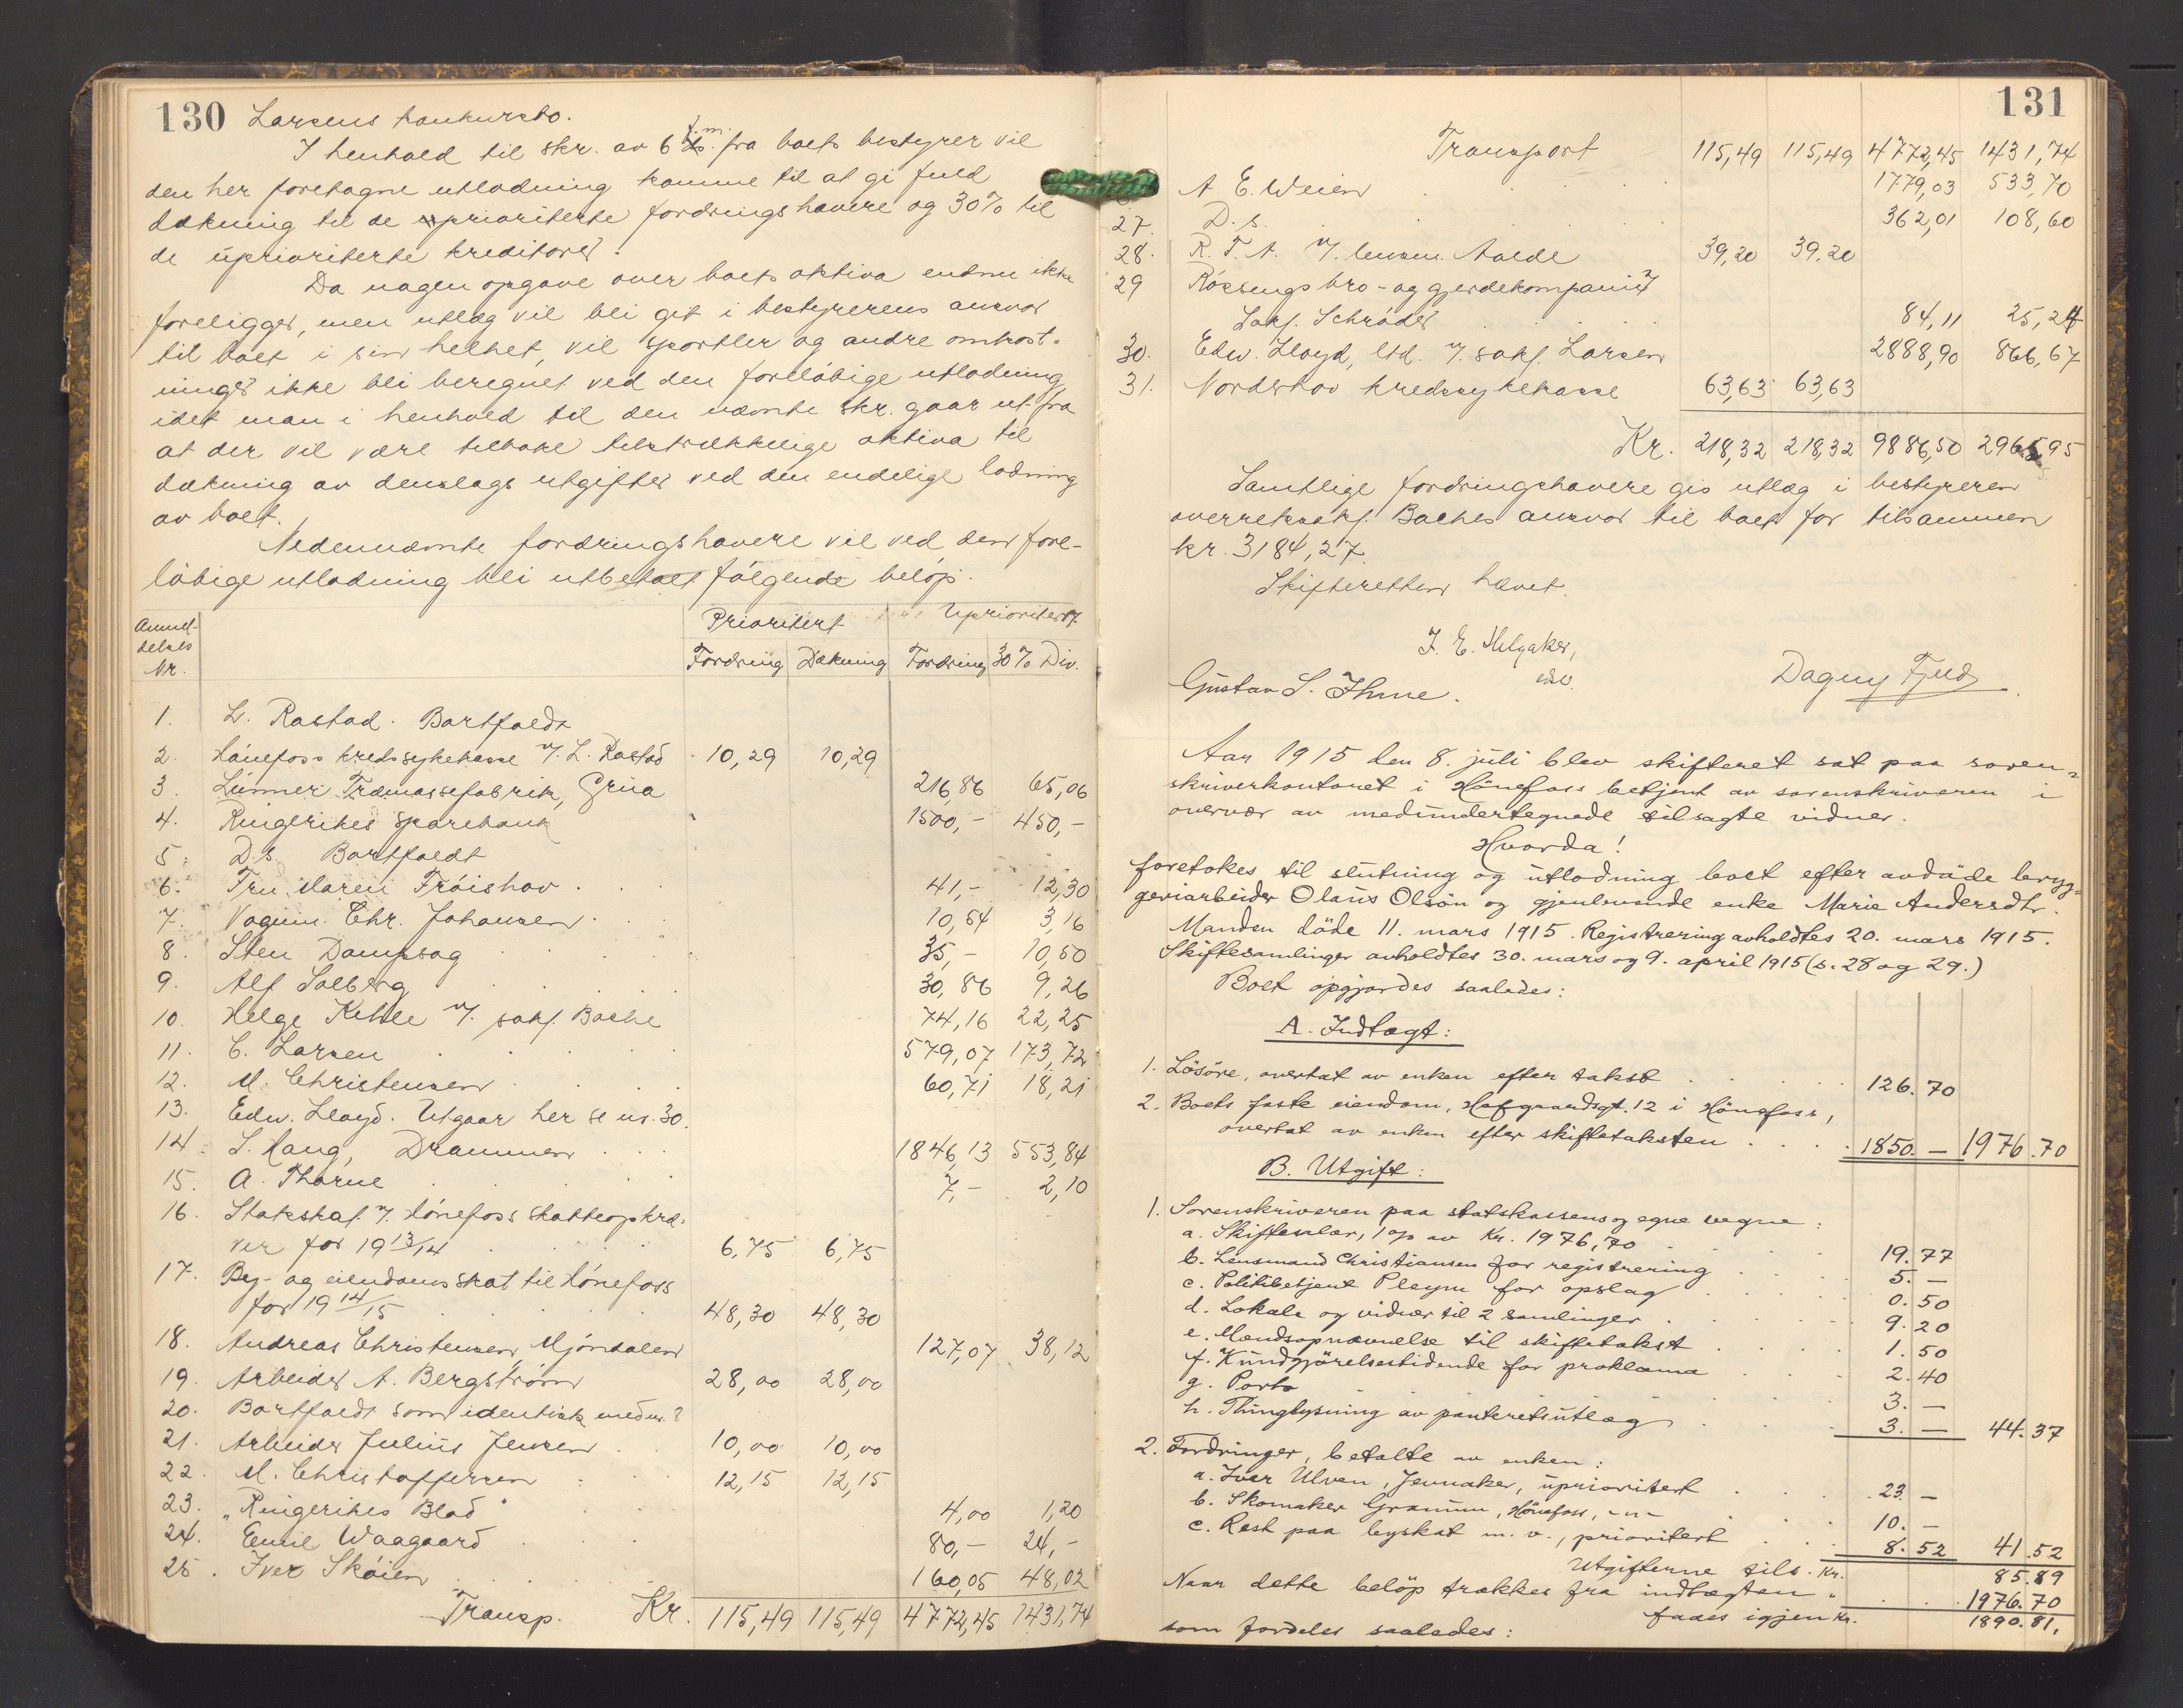 130 Larsens konkursbo.
I henhold til skr. av 6 f.m. fra boets bestyrer vil
den her foretagne utlodning komme til at gi fuld
dækning til de prioriterte fordringshavere og 30% til
de uprioriterte kreditorer.
Da nogen opgave over boets aktiva endnu ikke
foreligger, men utlæg vil bli git i bestyrerens ansvar
til boet i sin helhet, vil sportler og andre omkost-
ninger ikke bli beregnet ved den foreløbige utlodning
idet man i henhold til den nævnte skr. gaar ut fra
at der vil være tilbake tilstrækkelige aktiva til
dækning av denslags utgifter ved den endelige lodning
av boet.
Nedennævnte fordringshavere vil ved den fore-
løbige utlodning bli utbetalt følgende beløp.
Anmel-
delses
Nr.
Prioritert Uprioritert
Fordring Dækning Fordring 30% Div.
1. L. Rastad. Bortfaldt
2. Hønefoss kredssykekasse v/. L. Rastad 10,29 10,29
3. Lunner Træmassefabrik, Grua 216,86 65,06
4. Ringerikes Sparebank 1500,- 450,-
5. D.s. Bortfaldt
6. Fru Maren Frøishov 41,- 12,30
7. Vognm. Chr. Johansen 10,54 3,16
8. Sten Dampsag 35,- 10,50
9. Alf Solberg 30,86 9,26
10. Helge Kihle v/. sakf. Bache 74,16 22,25
11. C. Larsen 579,07 173,72
12. M. Christensen 60,71 18,21
13. Edw. Lloyd. Utgaar her se nr. 30.
14. S. Haug, Drammen 1846,13 553,84
15. A. Thorne 7,- 2,10
16. Statsskat v/. Hønefoss skatteopkræ-
ver for 1913/14 6,75 6,75
17. By- og eiendomsskat til Hønefoss
for 1914/15 48,30 48,30
18. Andreas Christensen, Mjøndalen 127,07 38,12
19. Arbeider A. Bergstrøm 28,00 28,00
20. Bortfaldt som identisk med nr. 8
21. Arbeider Julius Jensen 10,00 10,00
22. M. Christoffersen 12,15 12,15
23. "Ringerikes Blad" 4,00 1,20
24. Emil Waagaard 80,- 24,-
25. Iver Skøien 160,05 48,02
Transp. Kr. 115,49 115,49 4772,45 1431,74
131
Transport 115,49 115,49 4772,45 1431,74
A. E. Weien 1779,03 533,70
27. D.s. 362,01 108,60
28. R. T. A. v/. lensm. 39,20 39,20
29 bro- og gjerdekompani v/
Sakf. Schrøder 84,11 25,24
30. Edw. Lloyd, ltd. v/. sakf. Larsen 2888,90 866,67
31. Norderhov kredssykekasse 63,63 63,63
Kr. 218,32 218,32 9886,50 2965,95
Samtlige fordringshavere gis utlæg i bestyreren
overretssakf. Baches ansvar til boet for tilsammen
kr. 3184,27.
Skifteretten hævet.
J. E. Helgaker,
edsv.
Gustav S. Ihme. Dagny Fjeld
Aar 1915 den 8. juli blev skifteret sat paa soren-
skriverkontoret i Hønefoss betjent av sorenskriveren i
overvær av medundertegnede tilsagte vidner.
Hvorda!
foretokes til slutning og utlodning boet efter avdøde bryg-
geriarbeider Olaus Olsøn og gjenlevende enke Marie Andersdtr.
Manden døde 11. mars 1915. Registrering avholdtes 20. mars 1915.
Skiftesamlinger avholdtes 30. mars og 9. april 1915 (s. 28 og 29.)
Boet opgjordes saaledes:
A. Indtægt:
1. Løsøre, overtat av enken efter takst 126.70
2. Boets faste eiendom, Hofgaardsgt. 12 i Hønefoss,
overtat av enken efter skiftetaksten 1850.— 1976.70
B. Utgift:
1. Sorenskriveren paa statskassens og egne vegne:
a. Skiftesalær, 1 op av Kr. 1976,70 19.77
b. Lensmand Christiansen for registrering 5.—
c. Politibetjent Pleym for opslag 0.50
d. Lokale og vidner til 2 samlinger 9.20
e. Mændsopnævnelse til skiftetakst 1.50
f. Kundgjørelsestidende for proklama 2.40
g. Porto 3.—
h. Thinglysning av panteretsutlæg 3.— 44.37
2. Fordringer, betalte av enken:
a. Iver Ulven, Jevnaker, uprioritert 23.—
b. Skomaker Gramm, Hønefoss, -"- 10.—
c. Rest paa byskat m. v., prioritert 8.52 41.52
Utgifterne tils. Kr. 85.89
Naar dette beløp trækkes fra indtægten " 1976.70
faaes igjen Kr. 1890.81.
som fordeles saaledes: